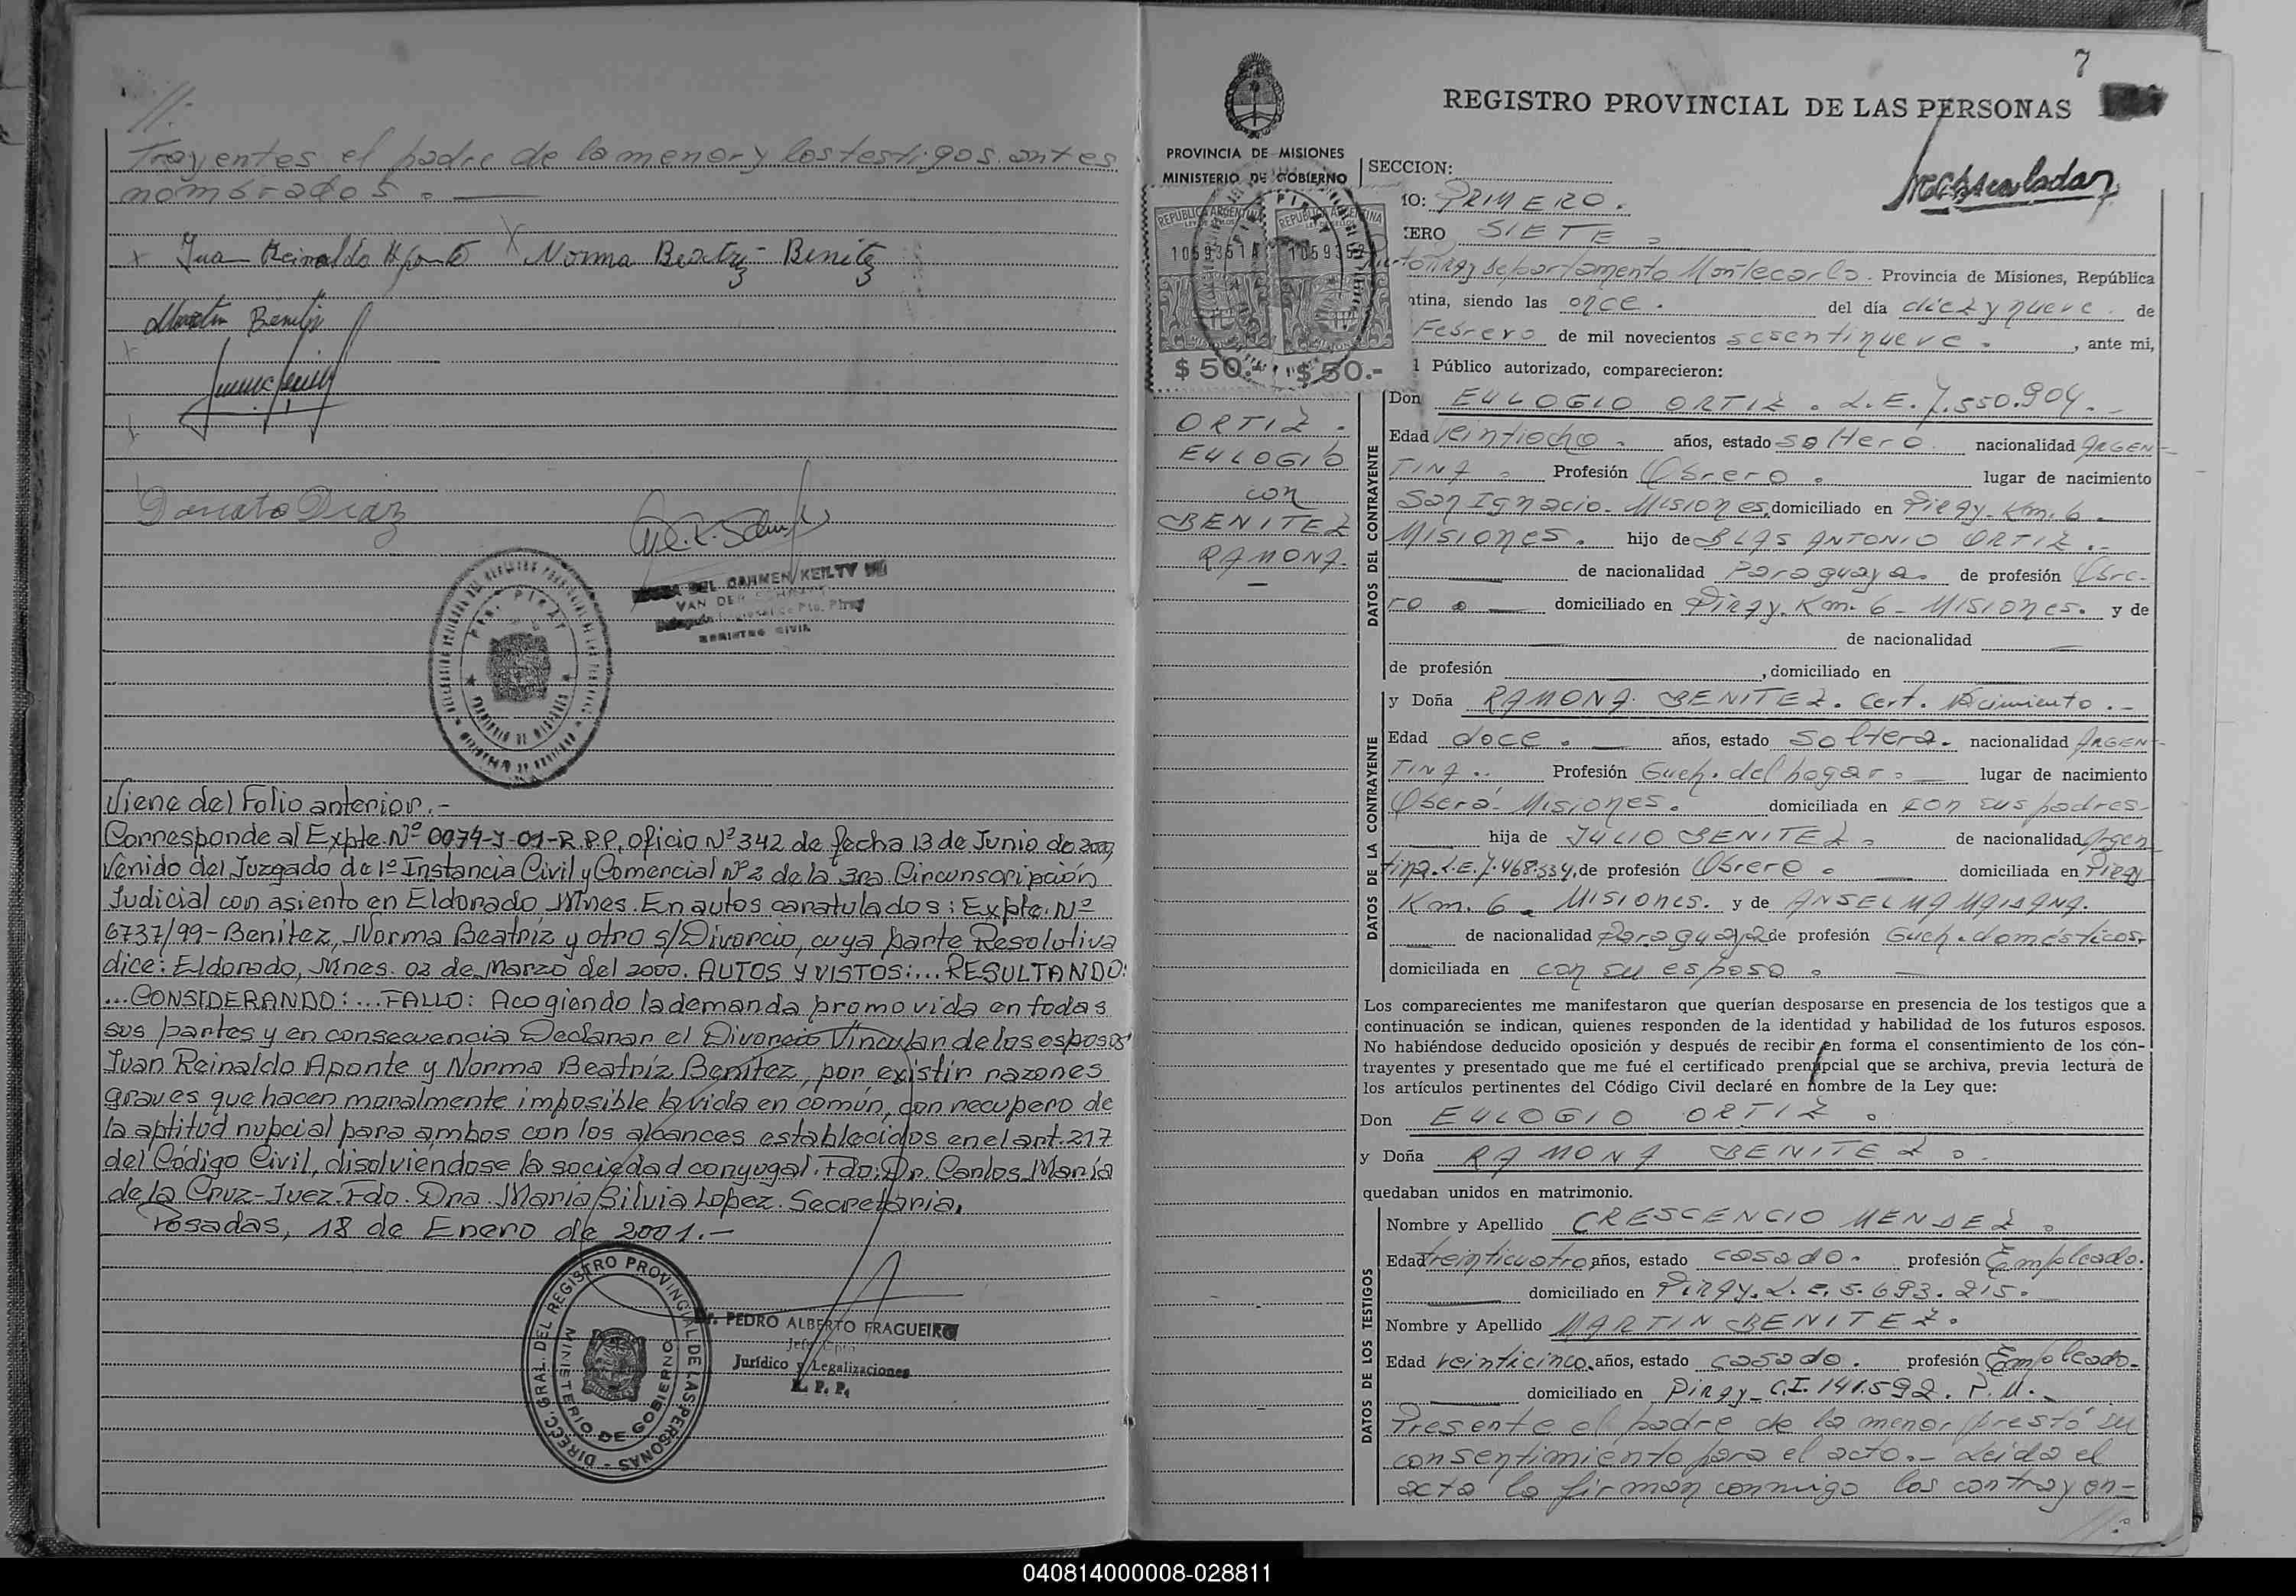 //.
Trayentes el padre de la menor y los testigos antes
nombrados. —
x Juan Reinaldo Aponte x Norma Beatriz Benitez
Martin Benitez
Donato Diaz
DEL CARMEN KEILTY DE
VAN DER
Pto. Piray
REGISTRO CIVIL
PTO. PIRAY
Viene del Folio anterior.-
Corresponde al Expte. Nº 0074-J-01-R.P.P, oficio Nº 342 de fecha 13 de Junio de 2000,
Venido del Juzgado de 1º Instancia Civil y Comercial Nº 2 de la 3ra. Circunscripción
Judicial con asiento en Eldorado, Mnes. En autos caratulados: Expte. Nº
6737/99-Benitez, Norma Beatriz y otro s/Divorcio, cuya parte Resolutiva
dice: Eldorado, Mnes. 02 de Marzo del 2000. AUTOS Y VISTOS:... RESULTANDO:
...CONSIDERANDO:...FALLO: Acogiendo la demanda promovida en todas
sus partes y en consecuencia Declarar el Divorcio Vincular de los esposos
Juan Reinaldo Aponte y Norma Beatríz Benítez, por existir razones
graves que hacen moralmente imposible la vida en común, con recupero de
la aptitud nupcial para ambos con los alcances establecidos en el art. 217
del Código Civil, disolviéndose la sociedad conyugal. Fdo: Dr. Carlos María
de la Cruz-Juez. Fdo. Dra. María Silvia Lopez. Secretaria.
Posadas, 18 de Enero de 2001.-
DIRECC. GRAL. DEL REGISTRO PROVINCIAL DE LAS PERSONAS -
MINISTERIO DE GOBIERNO
Dr. PEDRO ALBERTO FRAGUEIRO
Jurídico y Legalizaciones
R. P. P.
7
REGISTRO PROVINCIAL DE LAS PERSONAS
PROVINCIA DE MISIONES
MINISTERIO DE GOBIERNO
SECCION:
IO: PRIMERO.
ERO SIETE
REPUBLICA ARGENTINA REPUBLICA ARGENTINA
$ 50.- $ 50.-
Piray departamento Montecarlo. Provincia de Misiones, República
ntina, siendo las once. del día diez y nueve. de
Febrero de mil novecientos sesentinueve. , ante mi,
l Público autorizado, comparecieron:
ORTIZ.
EULOGIO
con
BENITEZ
RAMONA.
—
DATOS DEL CONTRAYENTE
Don EULOGIO ORTIZ. L.E. 7.550.904.-
Edad veintiocho. años, estado soltero. nacionalidad ARGEN-
TINA. Profesión Obrero. lugar de nacimiento
San Ignacio. Misiones, domiciliado en Piray. Km. 6.
MISIONES. hijo de BLAS ANTONIO ORTIZ.-
de nacionalidad Paraguaya. de profesión Obre-
ro. — domiciliado en Piray. Km. 6 - MISIONES. y de
de nacionalidad
de profesión , domiciliado en
DATOS DE LA CONTRAYENTE
y Doña RAMONA BENITEZ. Cert. Nacimiento.-
Edad doce. — años, estado Soltera. nacionalidad ARGEN-
TINA.. Profesión Queh. del hogar. — lugar de nacimiento
Oberá. Misiones. domiciliada en con sus padres-
hija de JULIO BENITEZ. de nacionalidad Argen
tina. L.E. 7.468.334, de profesión Obrero. — domiciliada en Piray
Km. 6 - MISIONES. y de ANSELMA MAIDANA.
de nacionalidad Paraguaya de profesión Queh. domésticos,
domiciliada en con su esposo. —
Los comparecientes me manifestaron que querían desposarse en presencia de los testigos que a
continuación se indican, quienes responden de la identidad y habilidad de los futuros esposos.
No habiéndose deducido oposición y después de recibir en forma el consentimiento de los con-
trayentes y presentado que me fué el certificado prenupcial que se archiva, previa lectura de
los artículos pertinentes del Código Civil declaré en nombre de la Ley que:
Don EULOGIO ORTIZ.
y Doña RAMONA BENITEZ.
quedaban unidos en matrimonio.
DATOS DE LOS TESTIGOS
Nombre y Apellido CRESCENCIO MENDEZ.
Edad treinticuatro, años, estado casado. profesión Empleado.
domiciliado en Piray. L. E. 5.693.215.
Nombre y Apellido MARTIN BENITEZ.
Edad veinticinco. años, estado casado. profesión Empleado-
domiciliado en Piray - C.I. 141.592. P. M.-
Presente el padre de la menor prestó su
consentimiento para el acto.- Leida el
acta la firman conmigo los contrayen-
//.
040814000008-028811